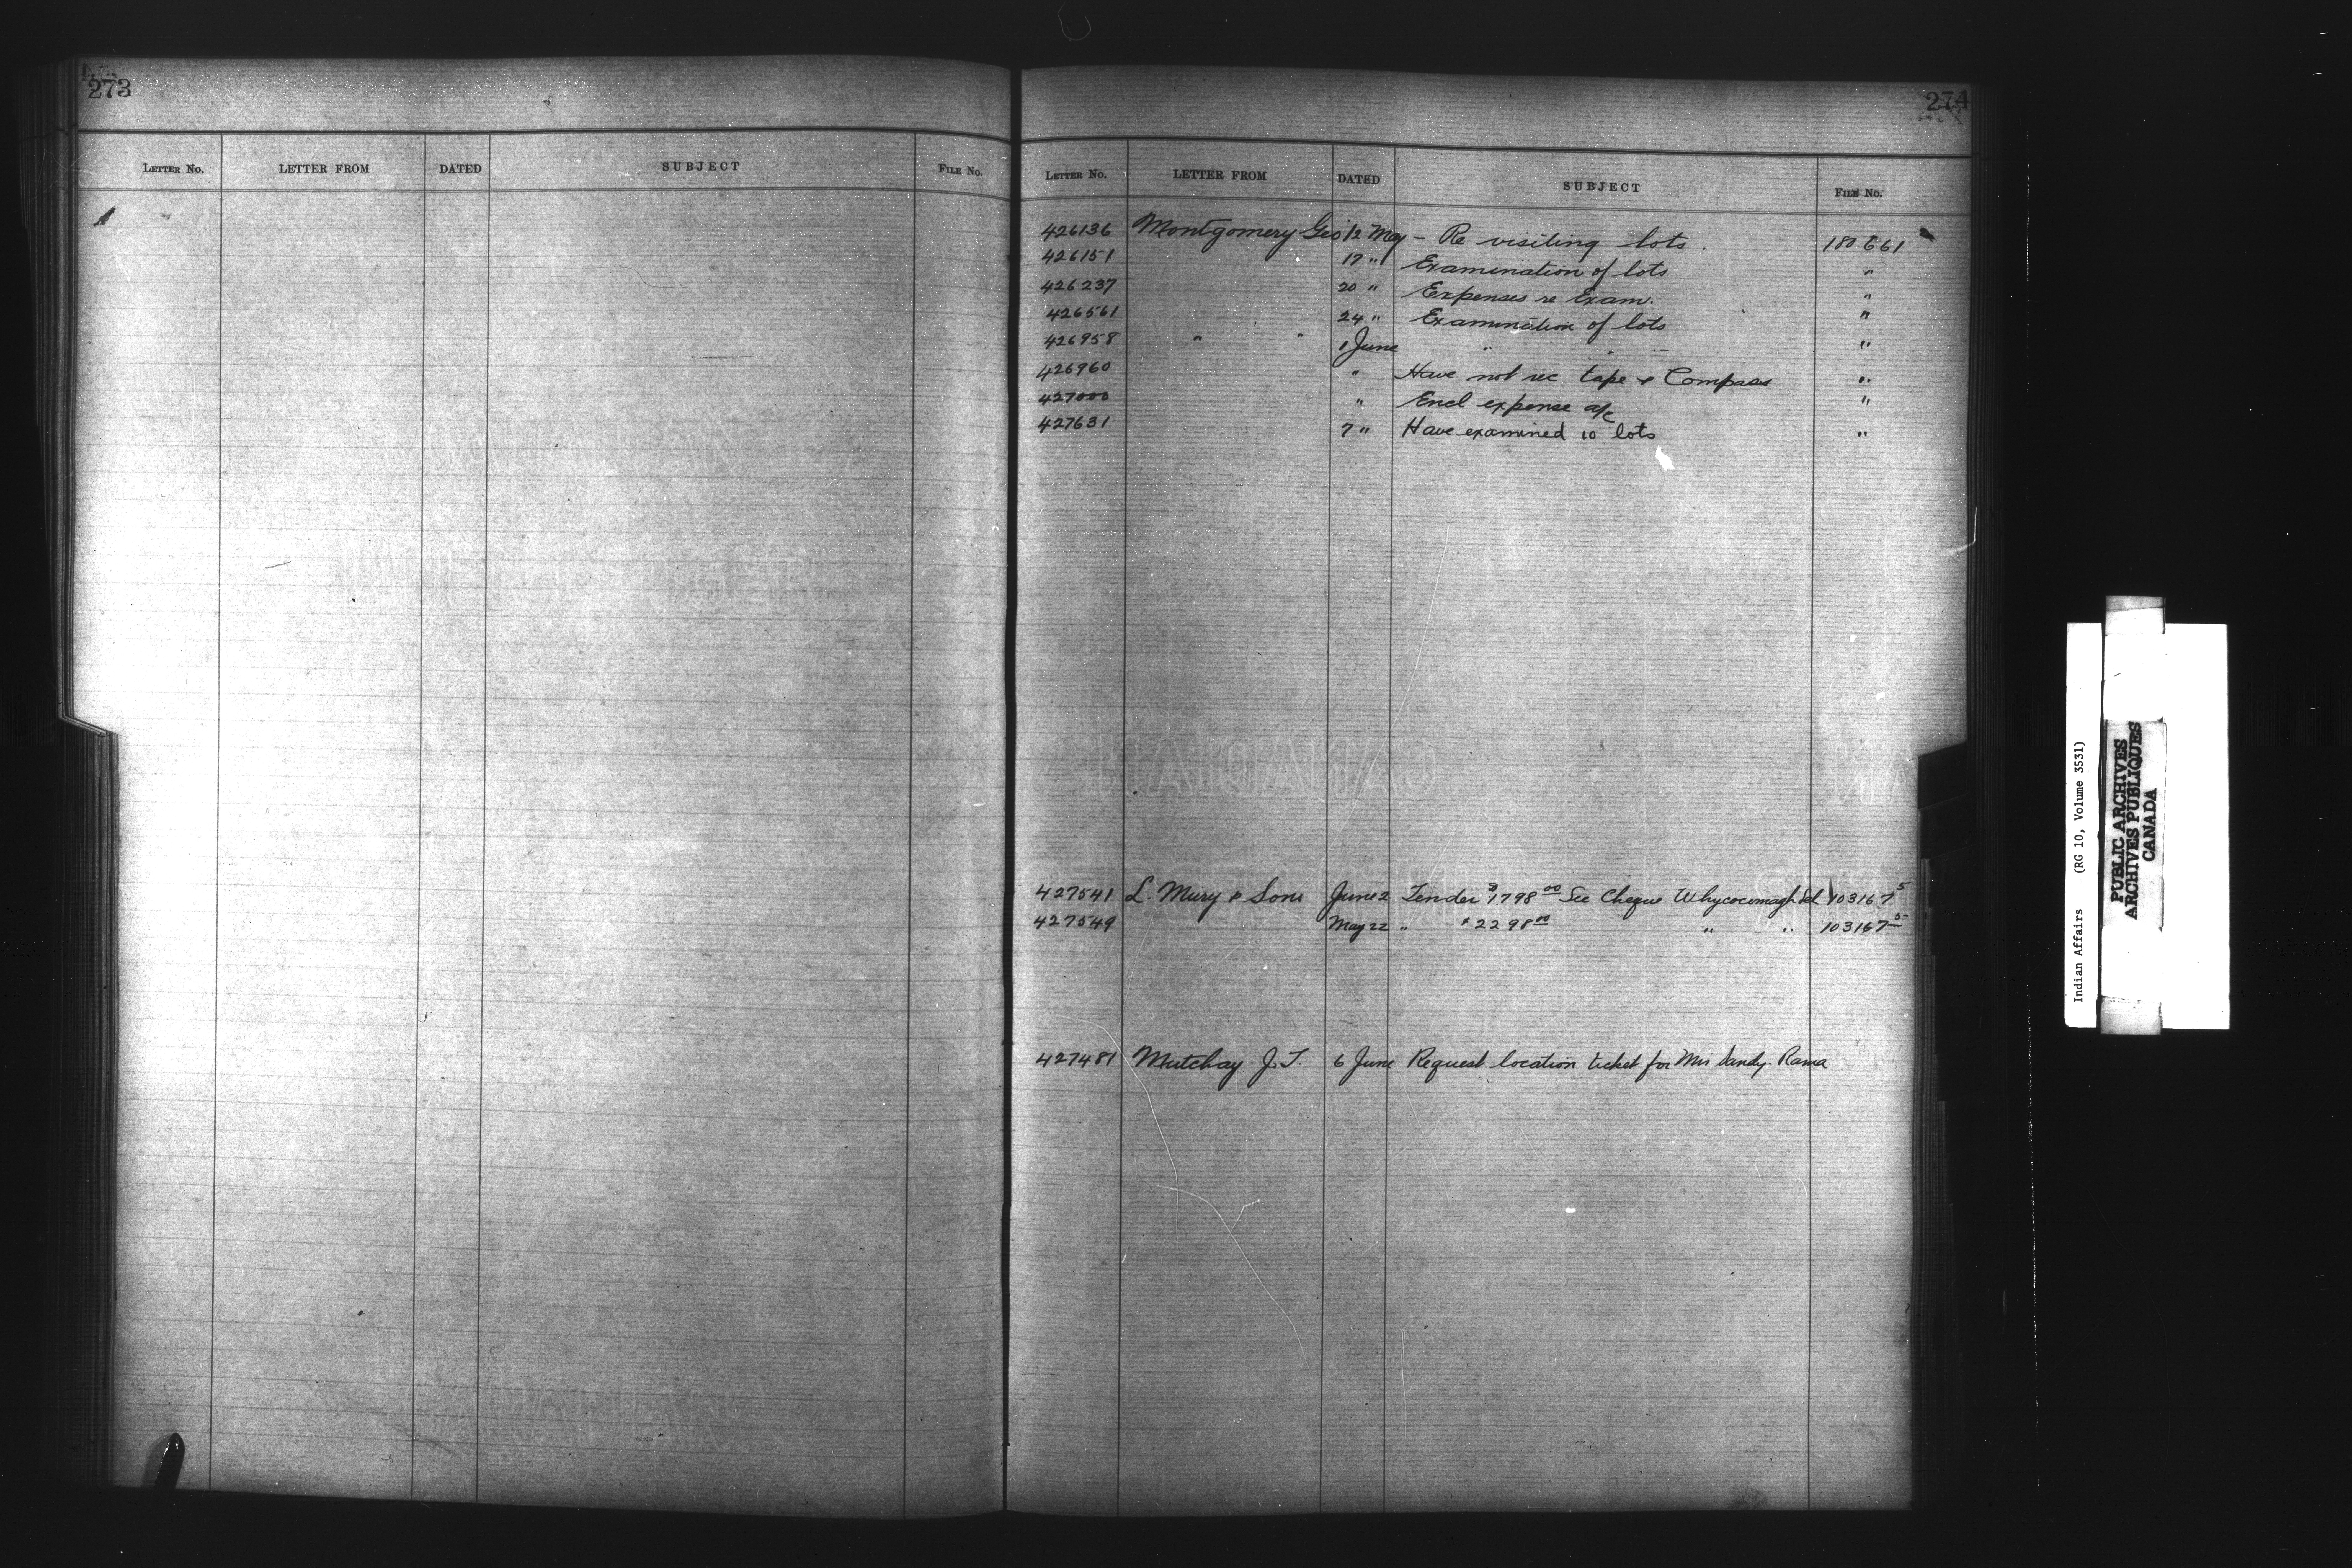 273
LETTER NO. LETTER FROM DATED SUBJECT FILE NO.
274
LETTER NO. LETTER FROM DATED SUBJECT FILE NO.
426136 Montgomery Geo 12 May - Re visiting lots. 180661
426151 17 " Examination of lots "
426237 20 " Expenses re Exam. "
426561 24 " Examination of lots "
426958 " " 1 June " " "
426960 " Have not rec tape & Compass "
427000 " Encl expense a/c "
427631 7 " Have examined 10 lots "
427541 L. Mury & Sons June 2 Tender $1798 00 See Cheque Whycocomagh Scl 103167 5
427549 May 22 " $2298 00 " " 103167 5
427481 Mutchay J. T. 6 June Request location ticket for Mrs Rama
Indian Affairs (RG 10, Volume 3531)
PUBLIC ARCHIVES
ARCHIVES PUBLIQUES
CANADA